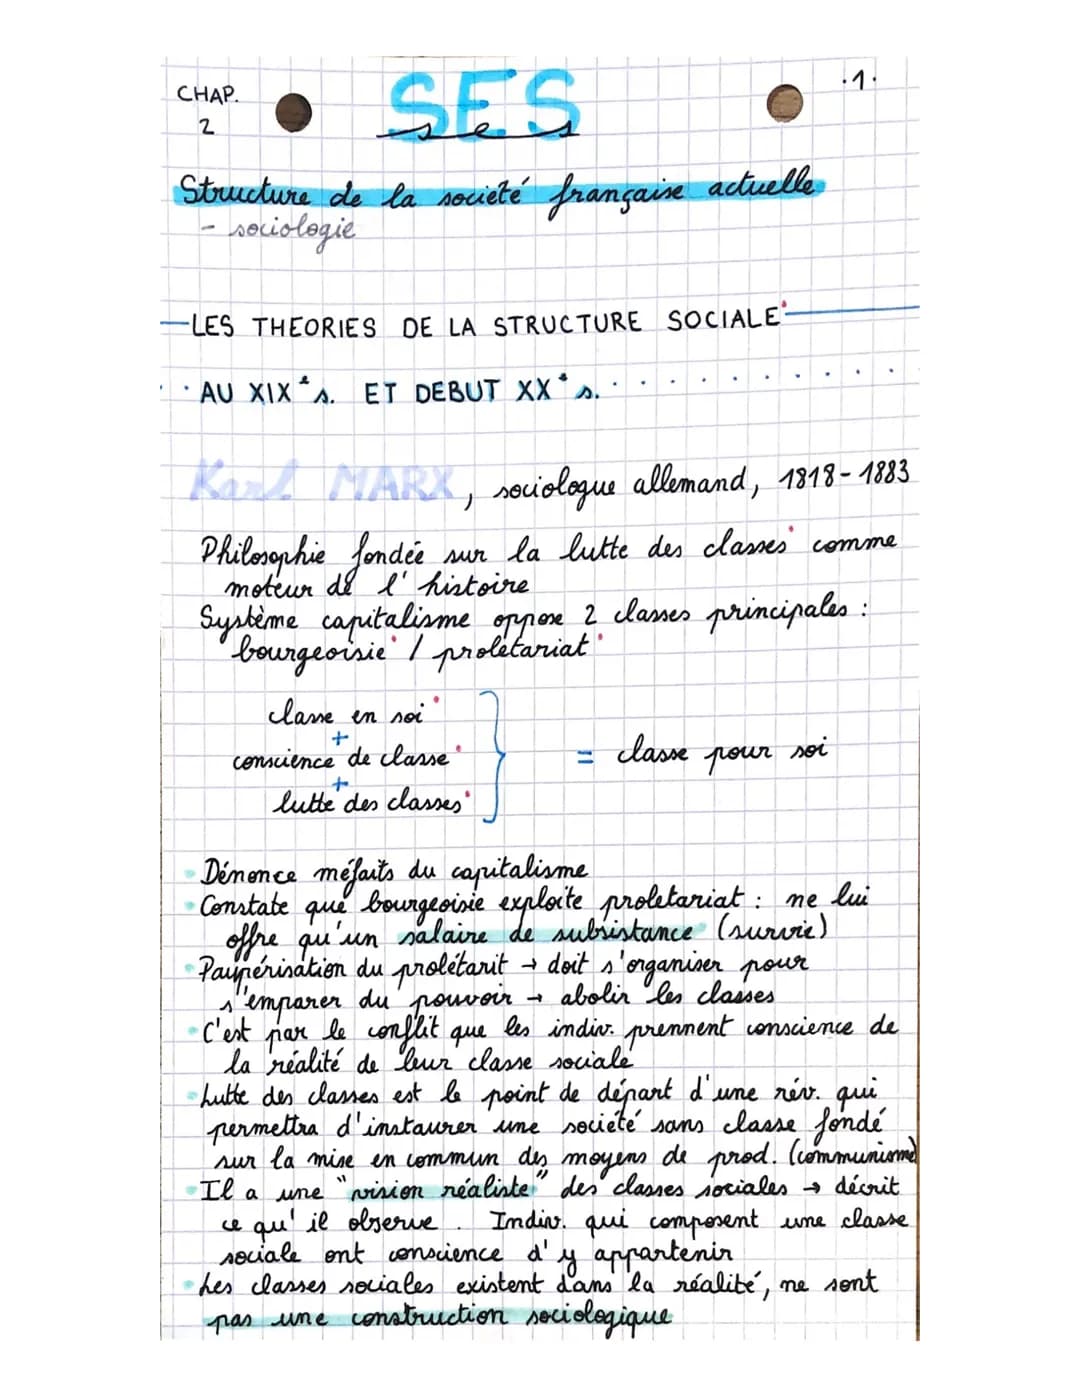 CHAP.
2
SES
ses
.1.
Structure de la société française actuelle
- sociologie
LES THEORIES DE LA STRUCTURE SOCIALE
. AU XIXe s. ET DEBUT XXe s. . . . . . . . . . .
Karl MARX, sociologue allemand, 1818-1883
Philosophie fondée sur la lutte des classes comme
moteur de l'histoire
Système capitalisme oppose 2 classes principales :
bourgeoisie / prolétariat
classe en soi
+
conscience de classe
+
lutte des classes
= classe pour soi
Dénonce méfaits du capitalisme
Constate que bourgeoisie exploite proletariat : ne lui
offre qu'un salaire de subsistance (survie)
Paupérisation du prolétarit → doit s'organiser pour
s'emparer du pouvoir → abolir les classes
C'est par le conflit que les indiv. prennent conscience de
la réalité de leur classe sociale
Lutte des classes est le point de départ d'une rév. qui
permettra d'instaurer une société sans classe fondé
sur la mise en commun des moyens de prod. (communisme)
Il a une "vision réaliste" des classes sociales → décrit
ce qu'il observe. Indiv. qui composent une classe
sociale ont conscience d'y appartenir
Les classes sociales existent dans la réalité, ne sont
pas une construction sociologique